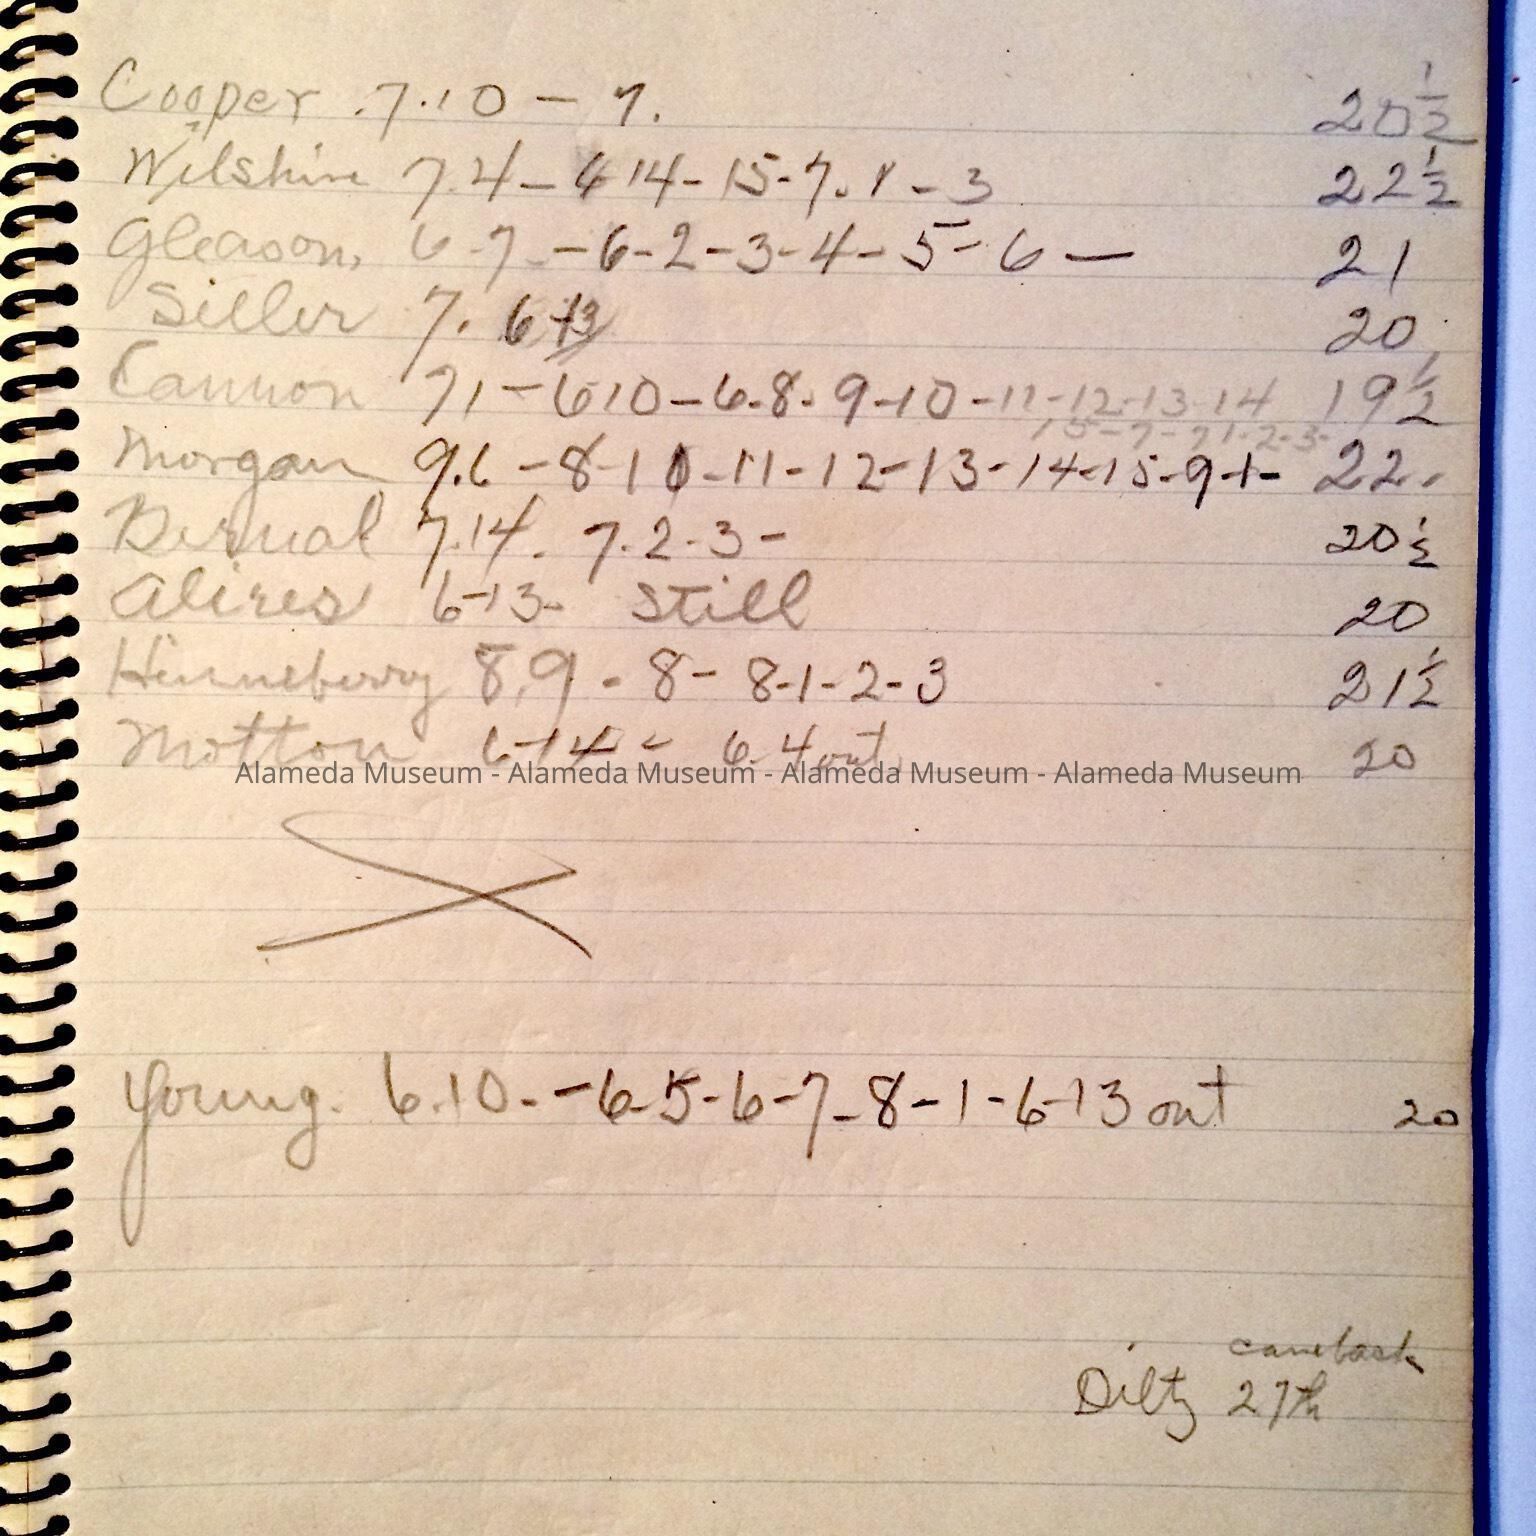 Cooper .7.10 - 7. 20½
Wilshire 7.4 - 6 14 - 15-7. 1 - 3 22½
Gleason, 6-7 - 6-2-3-4-5-6 — 21
Siller 7. 6 13 20
Cannon 71 - 610 - 6-8. 9-10 -11-12-13-14 19½
15-7-71-2-3-
Morgan 9.6 - 8-10-11-12-13-14-15-9-1- 22
Bernal 7.14. 7.2.3 - 20½
Alires 6-13. Still 20
Hinneberry 8.9 - 8 - 8-1-2-3 21½
Motton 6-14 - 6.4 out 20
Alameda Museum - Alameda Museum - Alameda Museum - Alameda Museum
Young. 6.10. - 6-5-6-7-8-1-6-13 out 20
came back
Diltz 27th